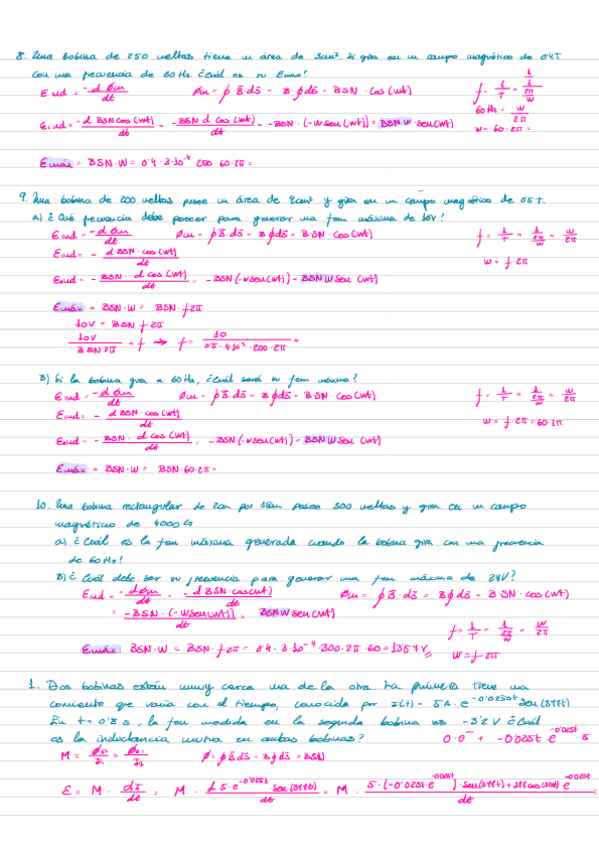 8. Una bobina de 250 vueltas tiene un área de 3cm². Si gira en un campo magnético de 0'4T
con una frecuencia de 60 Hz ¿Cuál es su Emax?
Eind = -dØm/dt   Øm = ∮ B̄ds̄ = B·∮ds̄ = BSN·cos(wt)   f = 1/T = 1/(2π/w)
60Hz = w/2π
Eind = -d BSN cos(wt)/dt = -BSN d cos(wt)/dt = -BSN·(-w sen(wt)) = BSNW sen(wt)   w = 60·2π =
Emáx = BSN·W = 0'4·3·10⁻⁴·250·60·2π =
9. Una bobina de 200 vueltas posee un área de 4cm² y gira en un campo magnético de 0'5T.
a) ¿Qué frecuencia debe poseer para generar una fem máxima de 10V?
Eind = -dØm/dt   Øm = ∮B̄·ds̄ = B∮ds̄ = B·SN·cos(wt)   f = 1/T = 1/(2π/w) = w/2π
Eind = - d BSN·cos(wt)/dt   w = f·2π
Eind = - BSN·d cos(wt)/dt = -BSN(-w sen(wt)) = BSNW sen(wt)
Emáx = BSN·W = BSN·f2π
10V = BSN f 2π
10V/BSN2π = f → f = 10/(0'5·4·10⁻⁴·200·2π) =
B) Si la bobina gira a 60Hz, ¿Cuál será su fem máxima?
Eind = -dØm/dt   Øm = ∮B̄·ds̄ = B∮ds̄ = B·SN·cos(wt)   f = 1/T = 1/(2π/w) = w/2π
Eind = - d BSN·cos(wt)/dt   w = f·2π = 60·2π
Eind = - BSN·d cos(wt)/dt = -BSN(-w sen(wt)) = BSNW sen(wt)
Emáx = BSN·W = BSN·60·2π =
10. Una bobina rectangular de 2cm por 1'5cm posee 300 vueltas y gira en un campo
magnético de 4000 G
a) ¿Cuál es la fem máxima generada cuando la bobina gira con una frecuencia
de 60Hz?
B) ¿Cuál debe ser su frecuencia para generar una fem máxima de 24V?
Eind = -dØm/dt = -d BSN cos(wt)/dt   Øm = ∮B̄ds̄ = B∮ds̄ = B·SN·cos(wt)
= -BSN·(-w sen(wt))/dt = BSNW sen(wt)
f = 1/T = 1/(2π/w) = w/2π
Emáx: BSN·W = BSN·f·2π = 0'4·3·10⁻⁴·300·2π·60 = 13'57V   W = f·2π
1. Dos bobinas están muy cerca una de la otra. La primera tiene una
corriente que varía con el tiempo, conocida por I(t) = 5A·e^-0'025t sen(377t)
En t = 0'8 s, la fem medida en la segunda bobina es -3'2 V ¿Cuál
es la inductancia mutua en ambas bobinas?   0·0⁻ + -0'025t e^-0'025t · 5
Ø = ∮B̄ds̄ = B∮ds̄ = BSN
E = M·dI/dt = M·d 5·e^-0'025t·sen(377t)/dt = M·